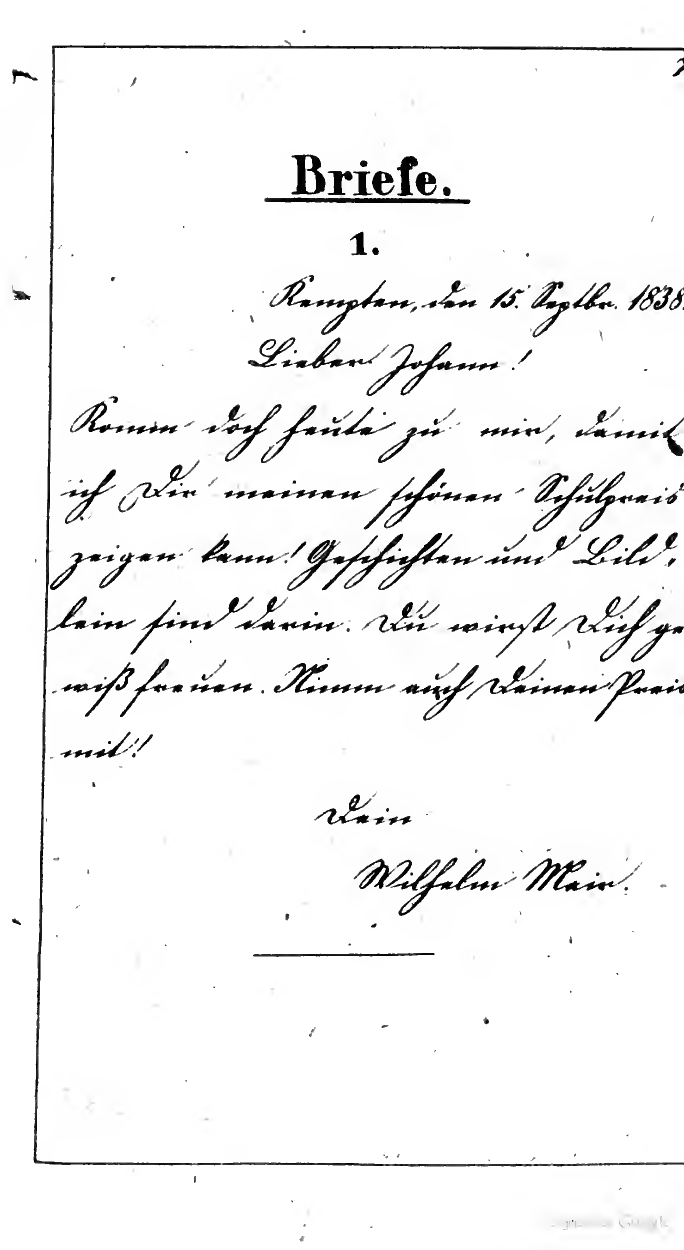 Briefe.
1.
Kempten, den 15. Septbr. 1838.
Lieber Johann!
Komm doch heute zu mir, damit
ich Dir meinen schönen Schulpreis
zeigen kann! Geschichten und Bild-
lein sind darin. Du wirst Dich ge
wiß freuen. Nimm auch Deinen Preis
mit!
Dein
Wilhelm Mair.